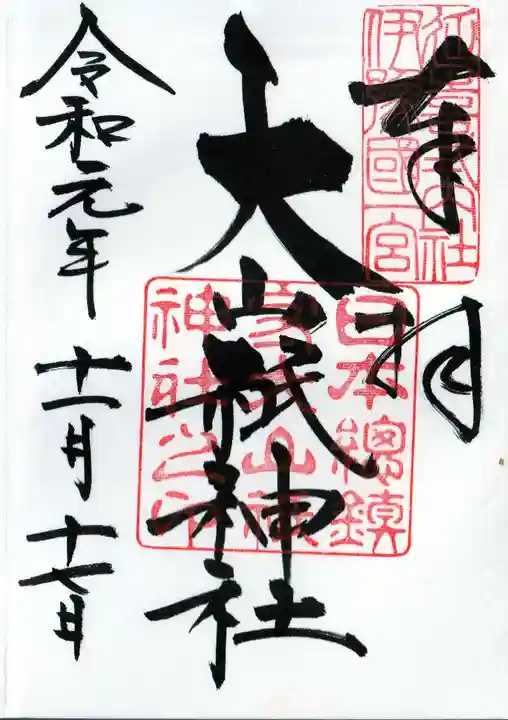 奉拝
延喜式内社
伊豫國一宮
大山祇神社
日本總鎮
神社之印
令和元年十一月十七日